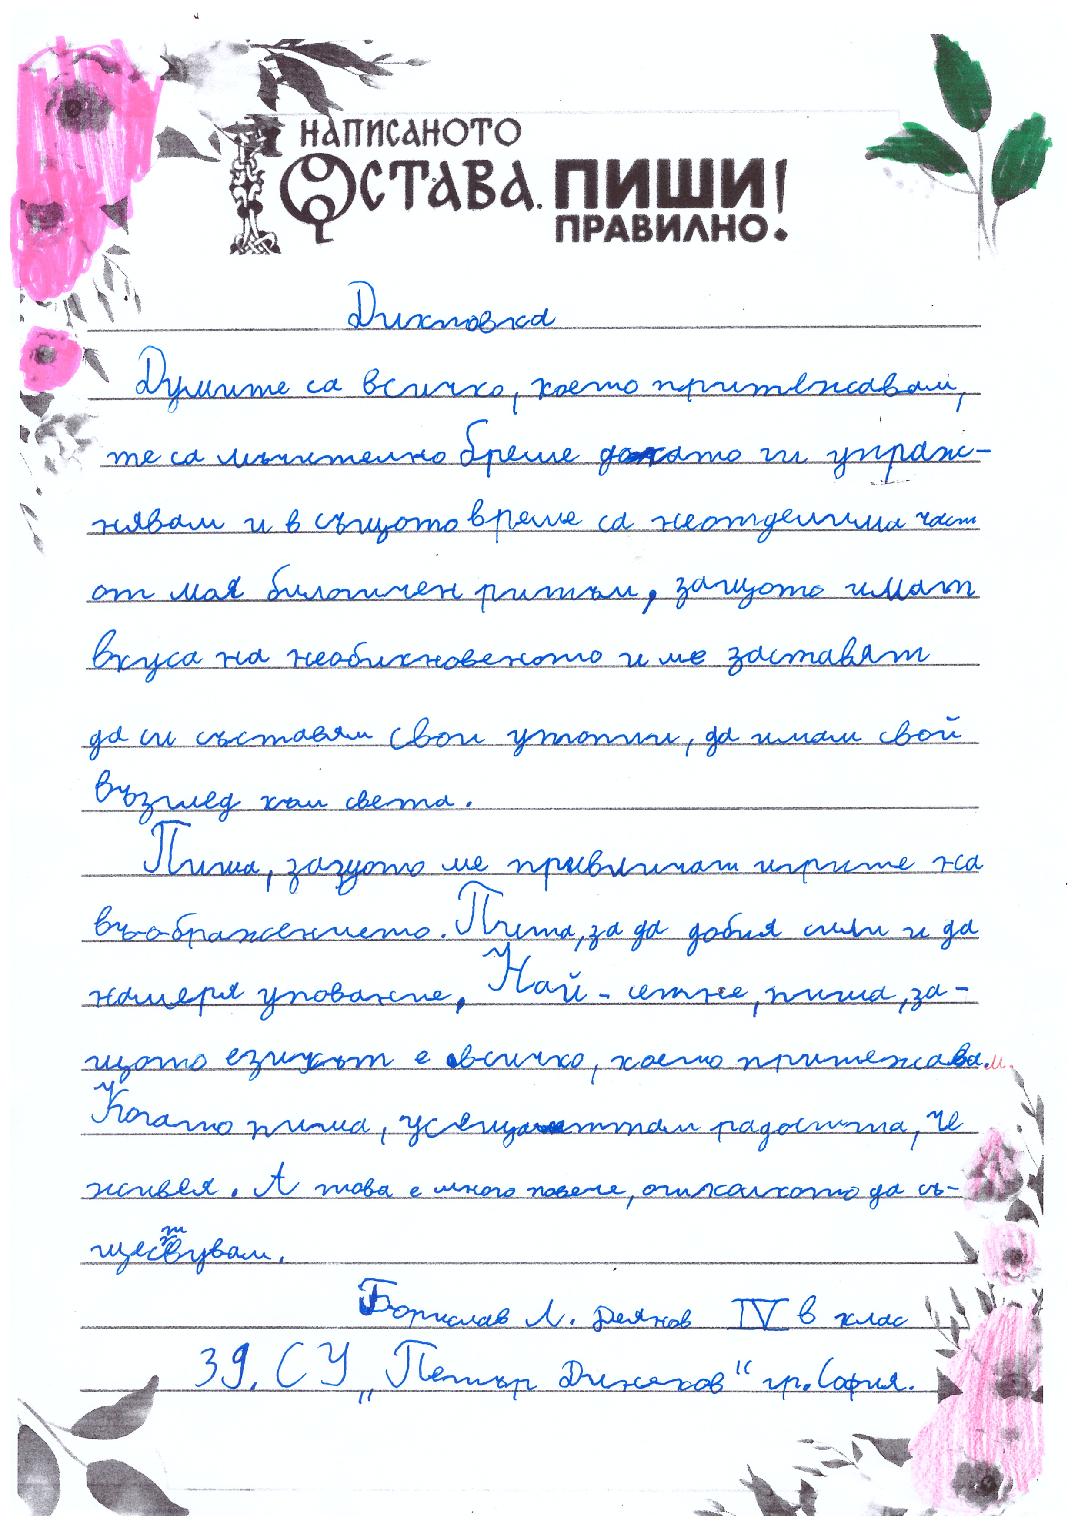 НАПИСАНОТО
ОСТАВА. ПИШИ
ПРАВИЛНО!
Диктовка
Думите са всичко, което притежавам,
те са мъчително бреме докато ги упраж-
нявам и в същото време са неотделима част
от моя билогичен ритъм, защото имат
вкуса на необикновеното и ме заставят
да си съставям свои утопии, да имам свой
възглед към света.
Пиша, защото ме привличат игрите на
въображението. Пиша, за да добия сили и да
намеря упование, Най - сетне, пиша, за-
щото езикът е всичко, което притежавам.
Когато пиша, усещам радостта, че
живея. А това е много повече, отколкото да съ-
ществувам.
Борислав Л. Деянов IV в клас
39. СУ „Петър Динеков" гр. София.